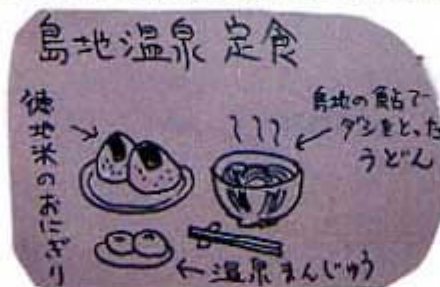 島地温泉 定食
徳地米のおにぎり
島地の鮎で
ダシをとった
うどん
温泉まんじゅう